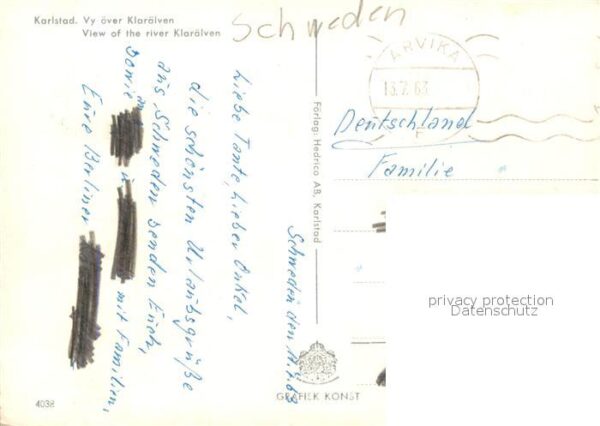 Karlstad. Vy över Klarälven
View of the river Klarälven
Schweden
ARVIKA
13.7.63
Schweden den 11.7.63
Liebe Tante, Lieber Onkel,
die schönsten Urlaubsgrüße
aus Schweden senden Euch,
sowie
mit Familien,
Eure Berliner
Förlag: Hedrico AB, Karlstad
Deutschland
Familie
privacy protection
Datenschutz
4038
GRAFISK KONST